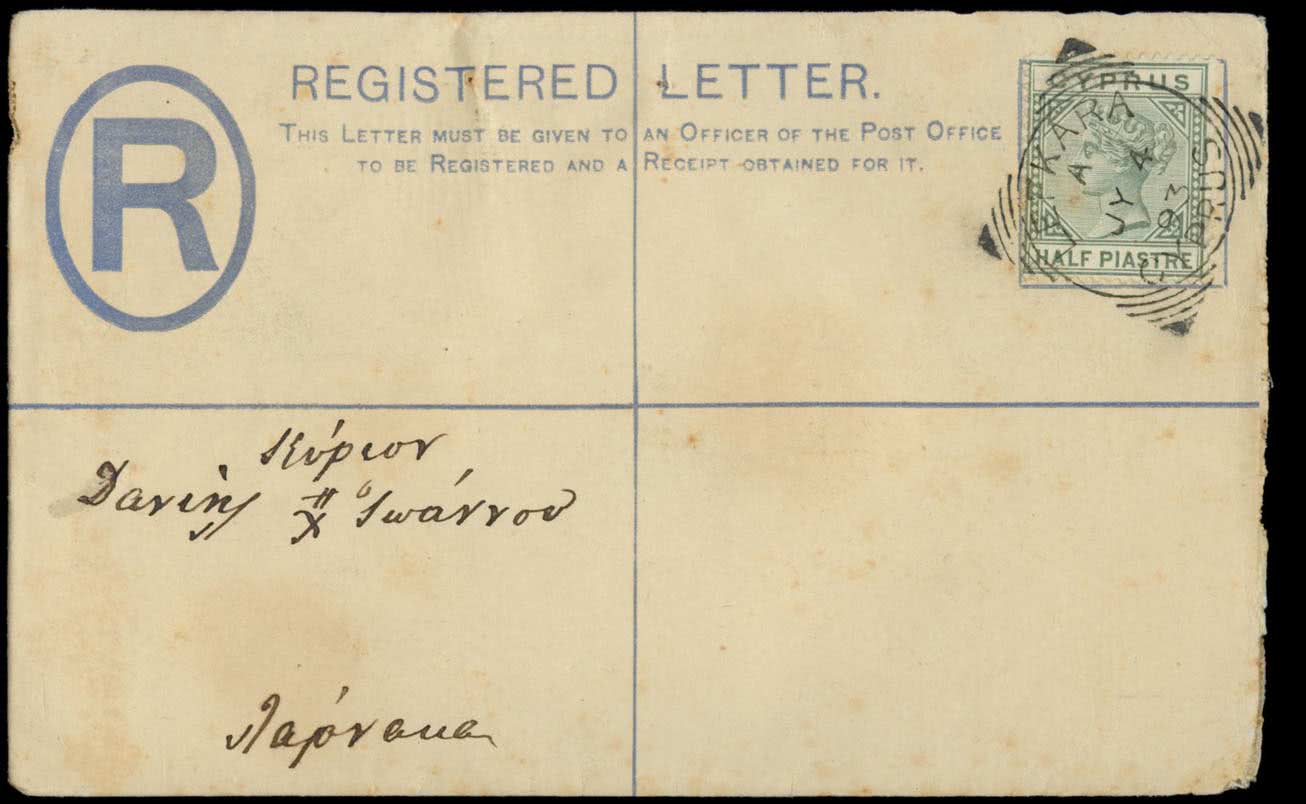 R
REGISTERED LETTER.
THIS LETTER MUST BE GIVEN TO AN OFFICER OF THE POST OFFICE
TO BE REGISTERED AND A RECEIPT OBTAINED FOR IT.
CYPRUS
HALF PIASTRE
LEFKARA
JY 4
93
CYPRUS
Κύριον
Χ Ἰωάννου
Λάρνακα